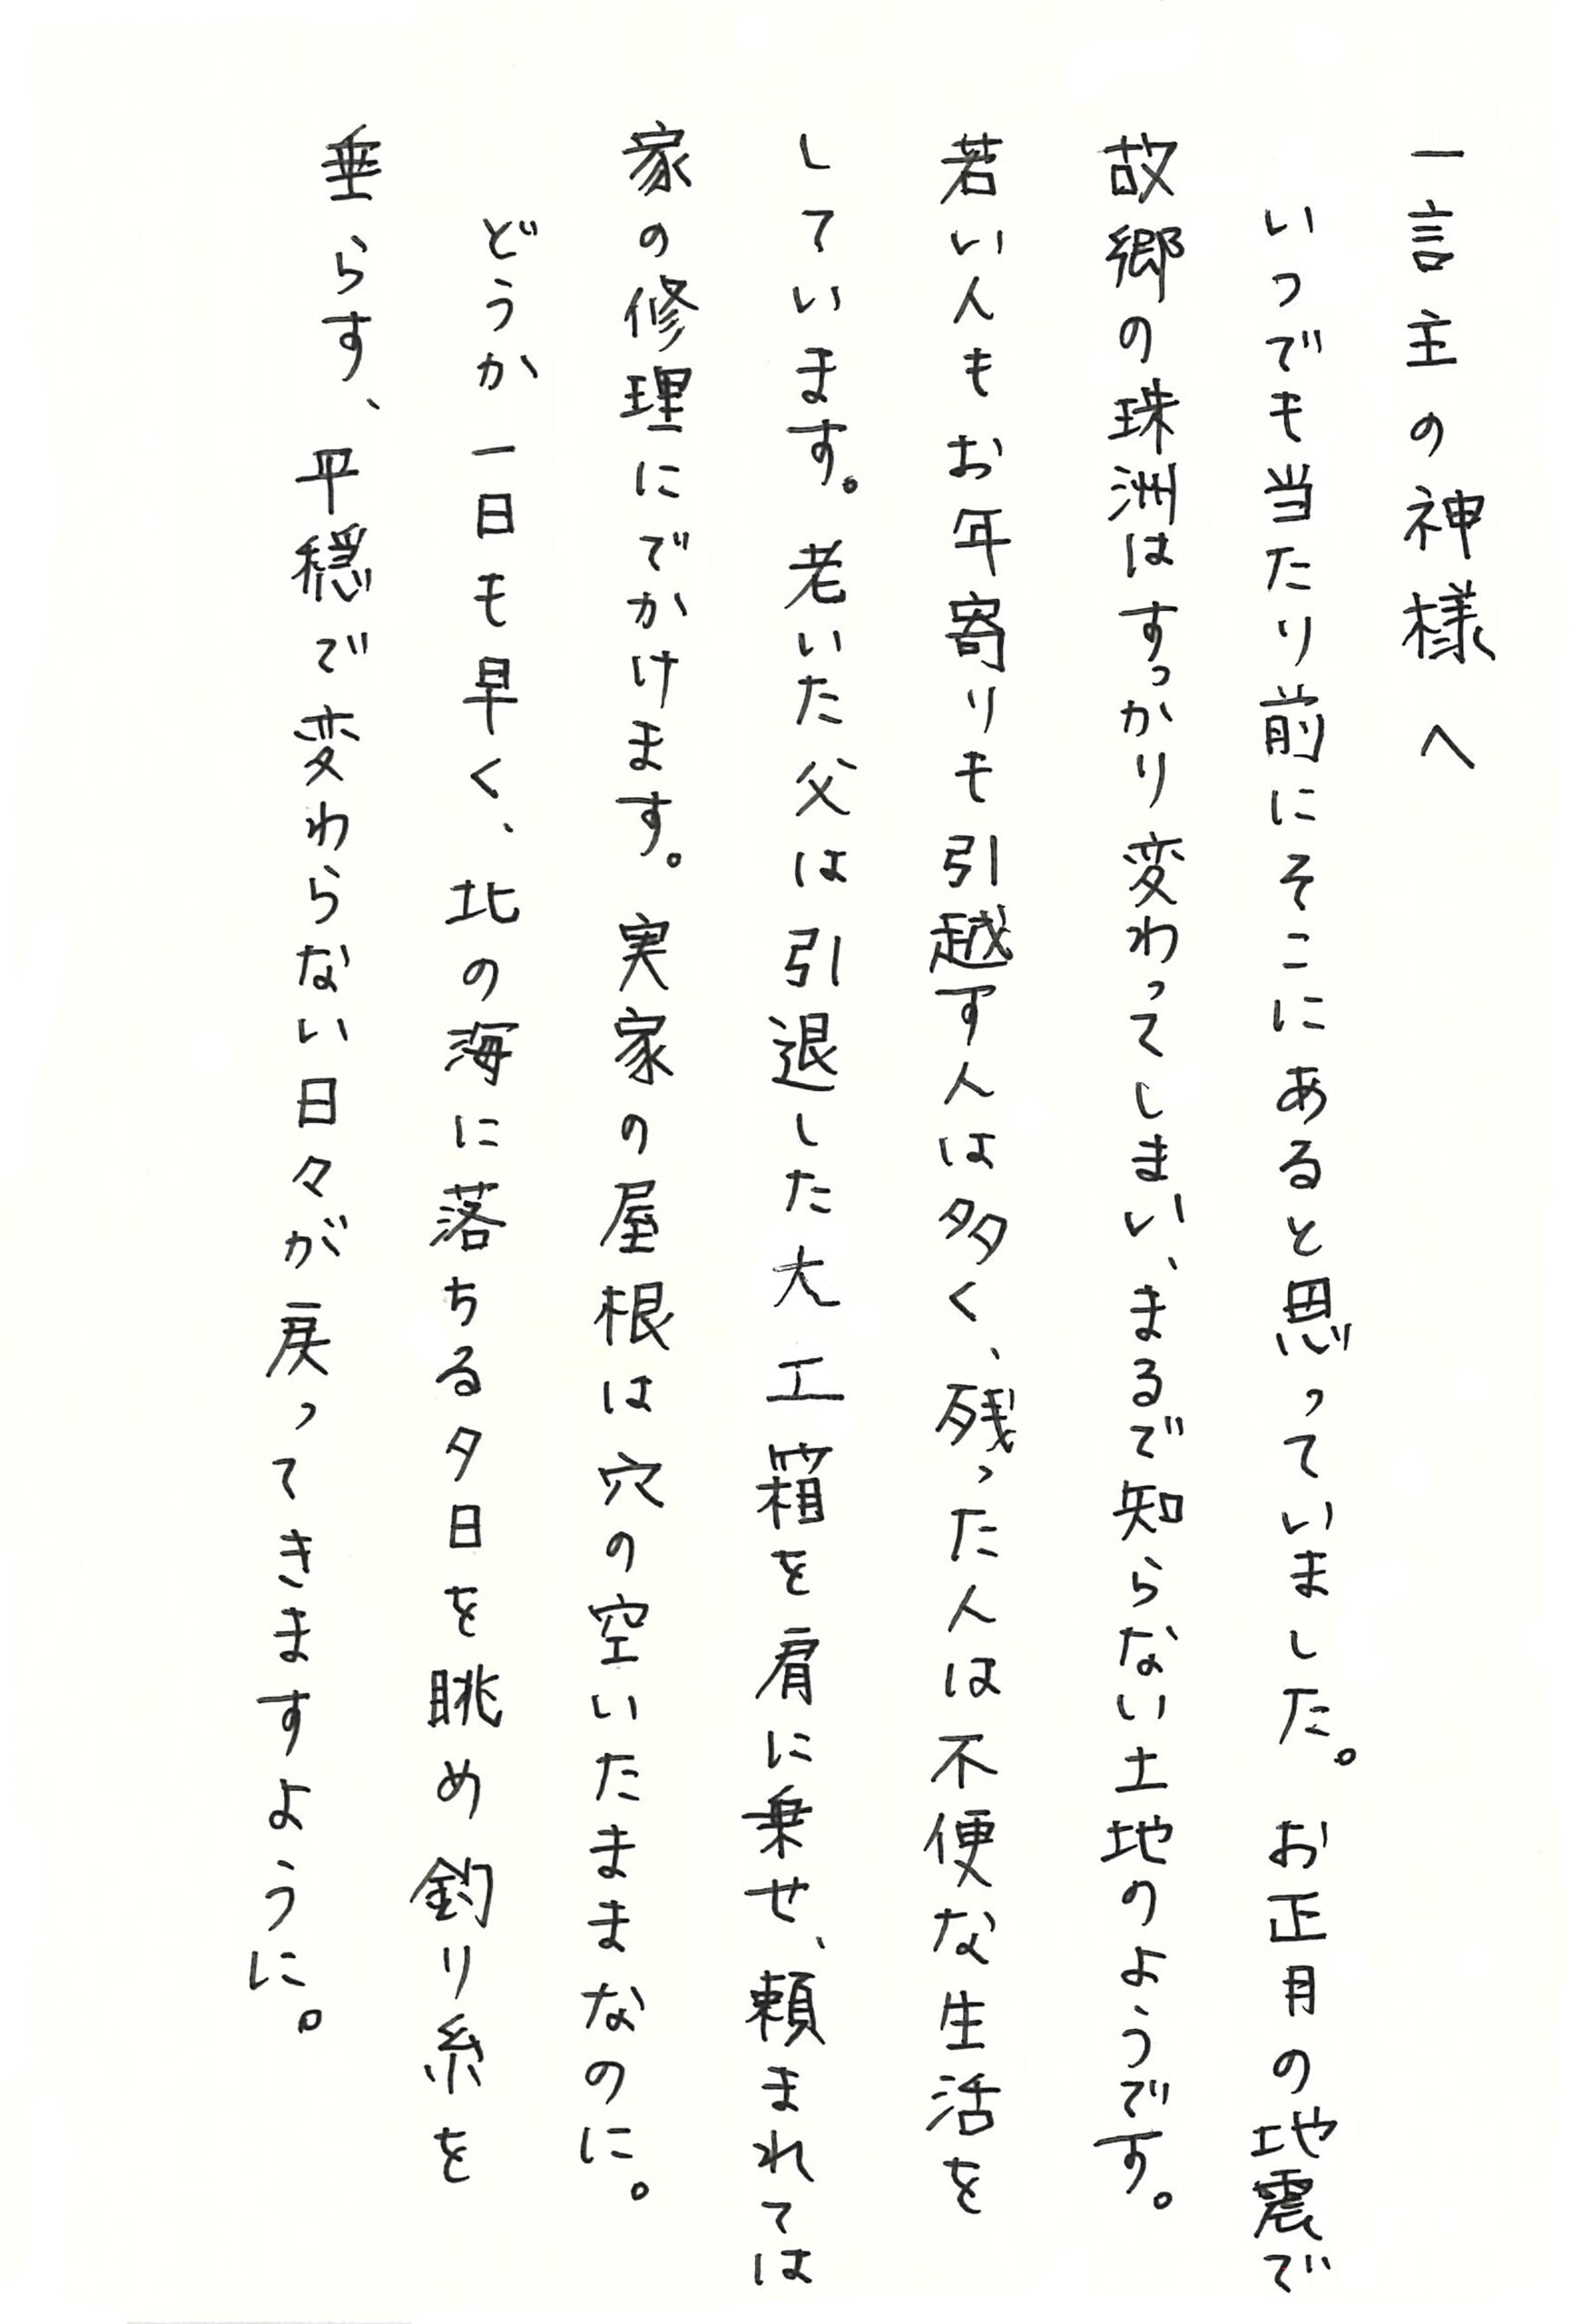 一言主の神様へ
いつでも当たり前にそこにあると思っていました。お正月の地震で
故郷の珠洲はすっかり変わってしまい、まるで知らない土地のようです。
若い人もお年寄りも引越す人は多く、残った人は不便な生活を
しています。老いた父は引退した大工箱を肩に乗せ、頼まれては
家の修理にでかけます。実家の屋根は穴の空いたままなのに。
どうか一日も早く、北の海に落ちる夕日を眺め釣り糸を
垂らす、平穏で変わらない日々が戻ってきますように。